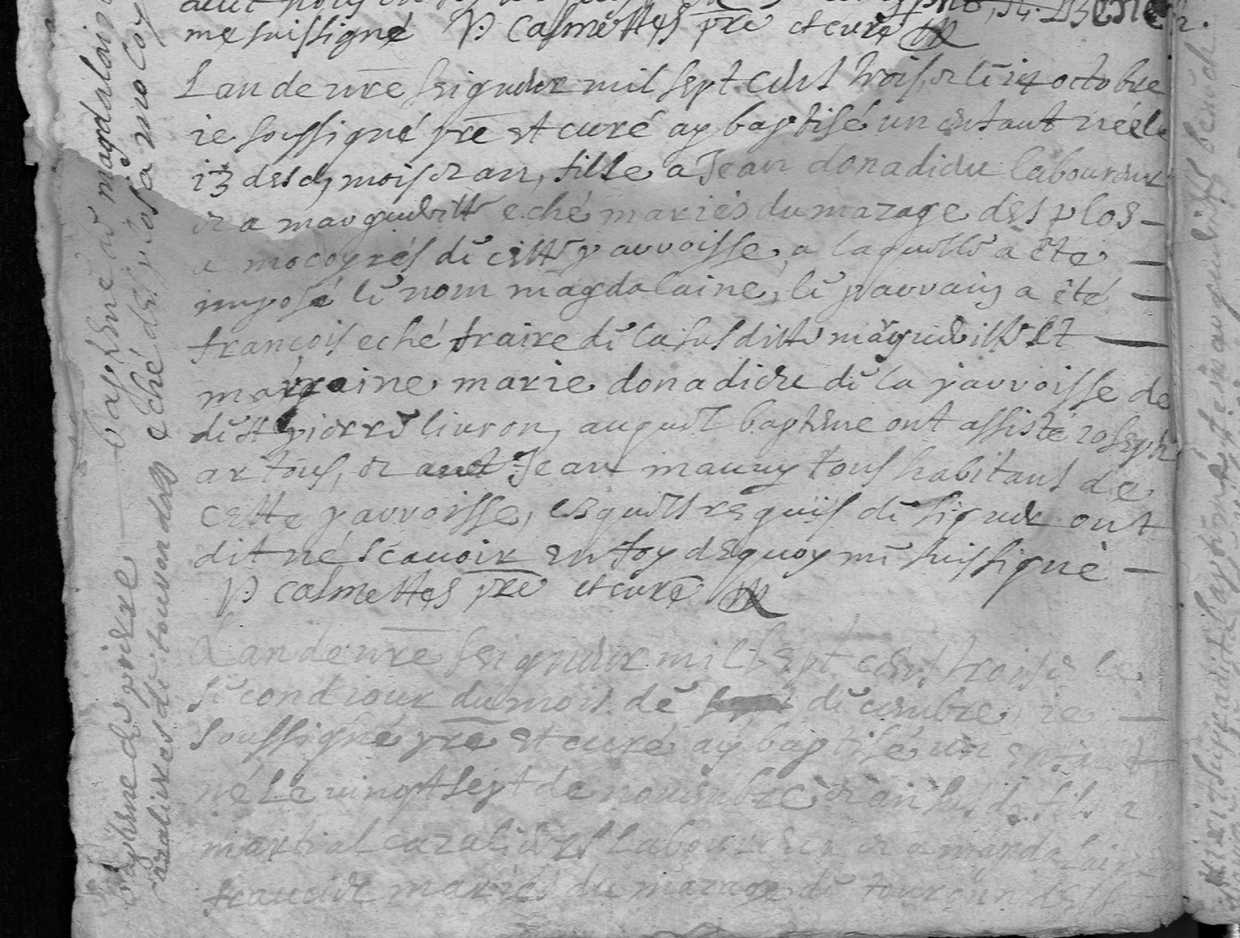 me suis signé P Calmettes pre et curé
Lan de nre seigneur mil sept cens trois, et le 14 octobre
ie soussigné pre et curé ay baptisé un enfant née le
13 desd, mois et an, fille a Jean donadieu laboureur
et a margueritte eché mariés du mazage des plos
a mocoyrés de cette parroisse, a laquelle a été
imposé le nom magdalaine, le parrain a été
francois eché fraire de la susditte margueritte et
marraine, marie donadieu de la parroisse de
de st pierre livron, auquel baptême ont assisté ioseph
artous, et Jean maury tous habitant de
cette parroisse, lesquels requis de signer ont
dit né scauoir en foy dequoy me suis signé
P Calmettes pre et curé
Lan de nre seigneur mil sept cens trois et le
second iour du mois de decembre, ie
soussigné pre et curé ay baptisé un enfant
né le vingt sept de novembre et an susd, fils a
martial cazalieres laboureur et a magdalaine
mariés du mazage de
baptême de magdalaine
eché des plos a mocoy
baptême de pierre
cazalieres de